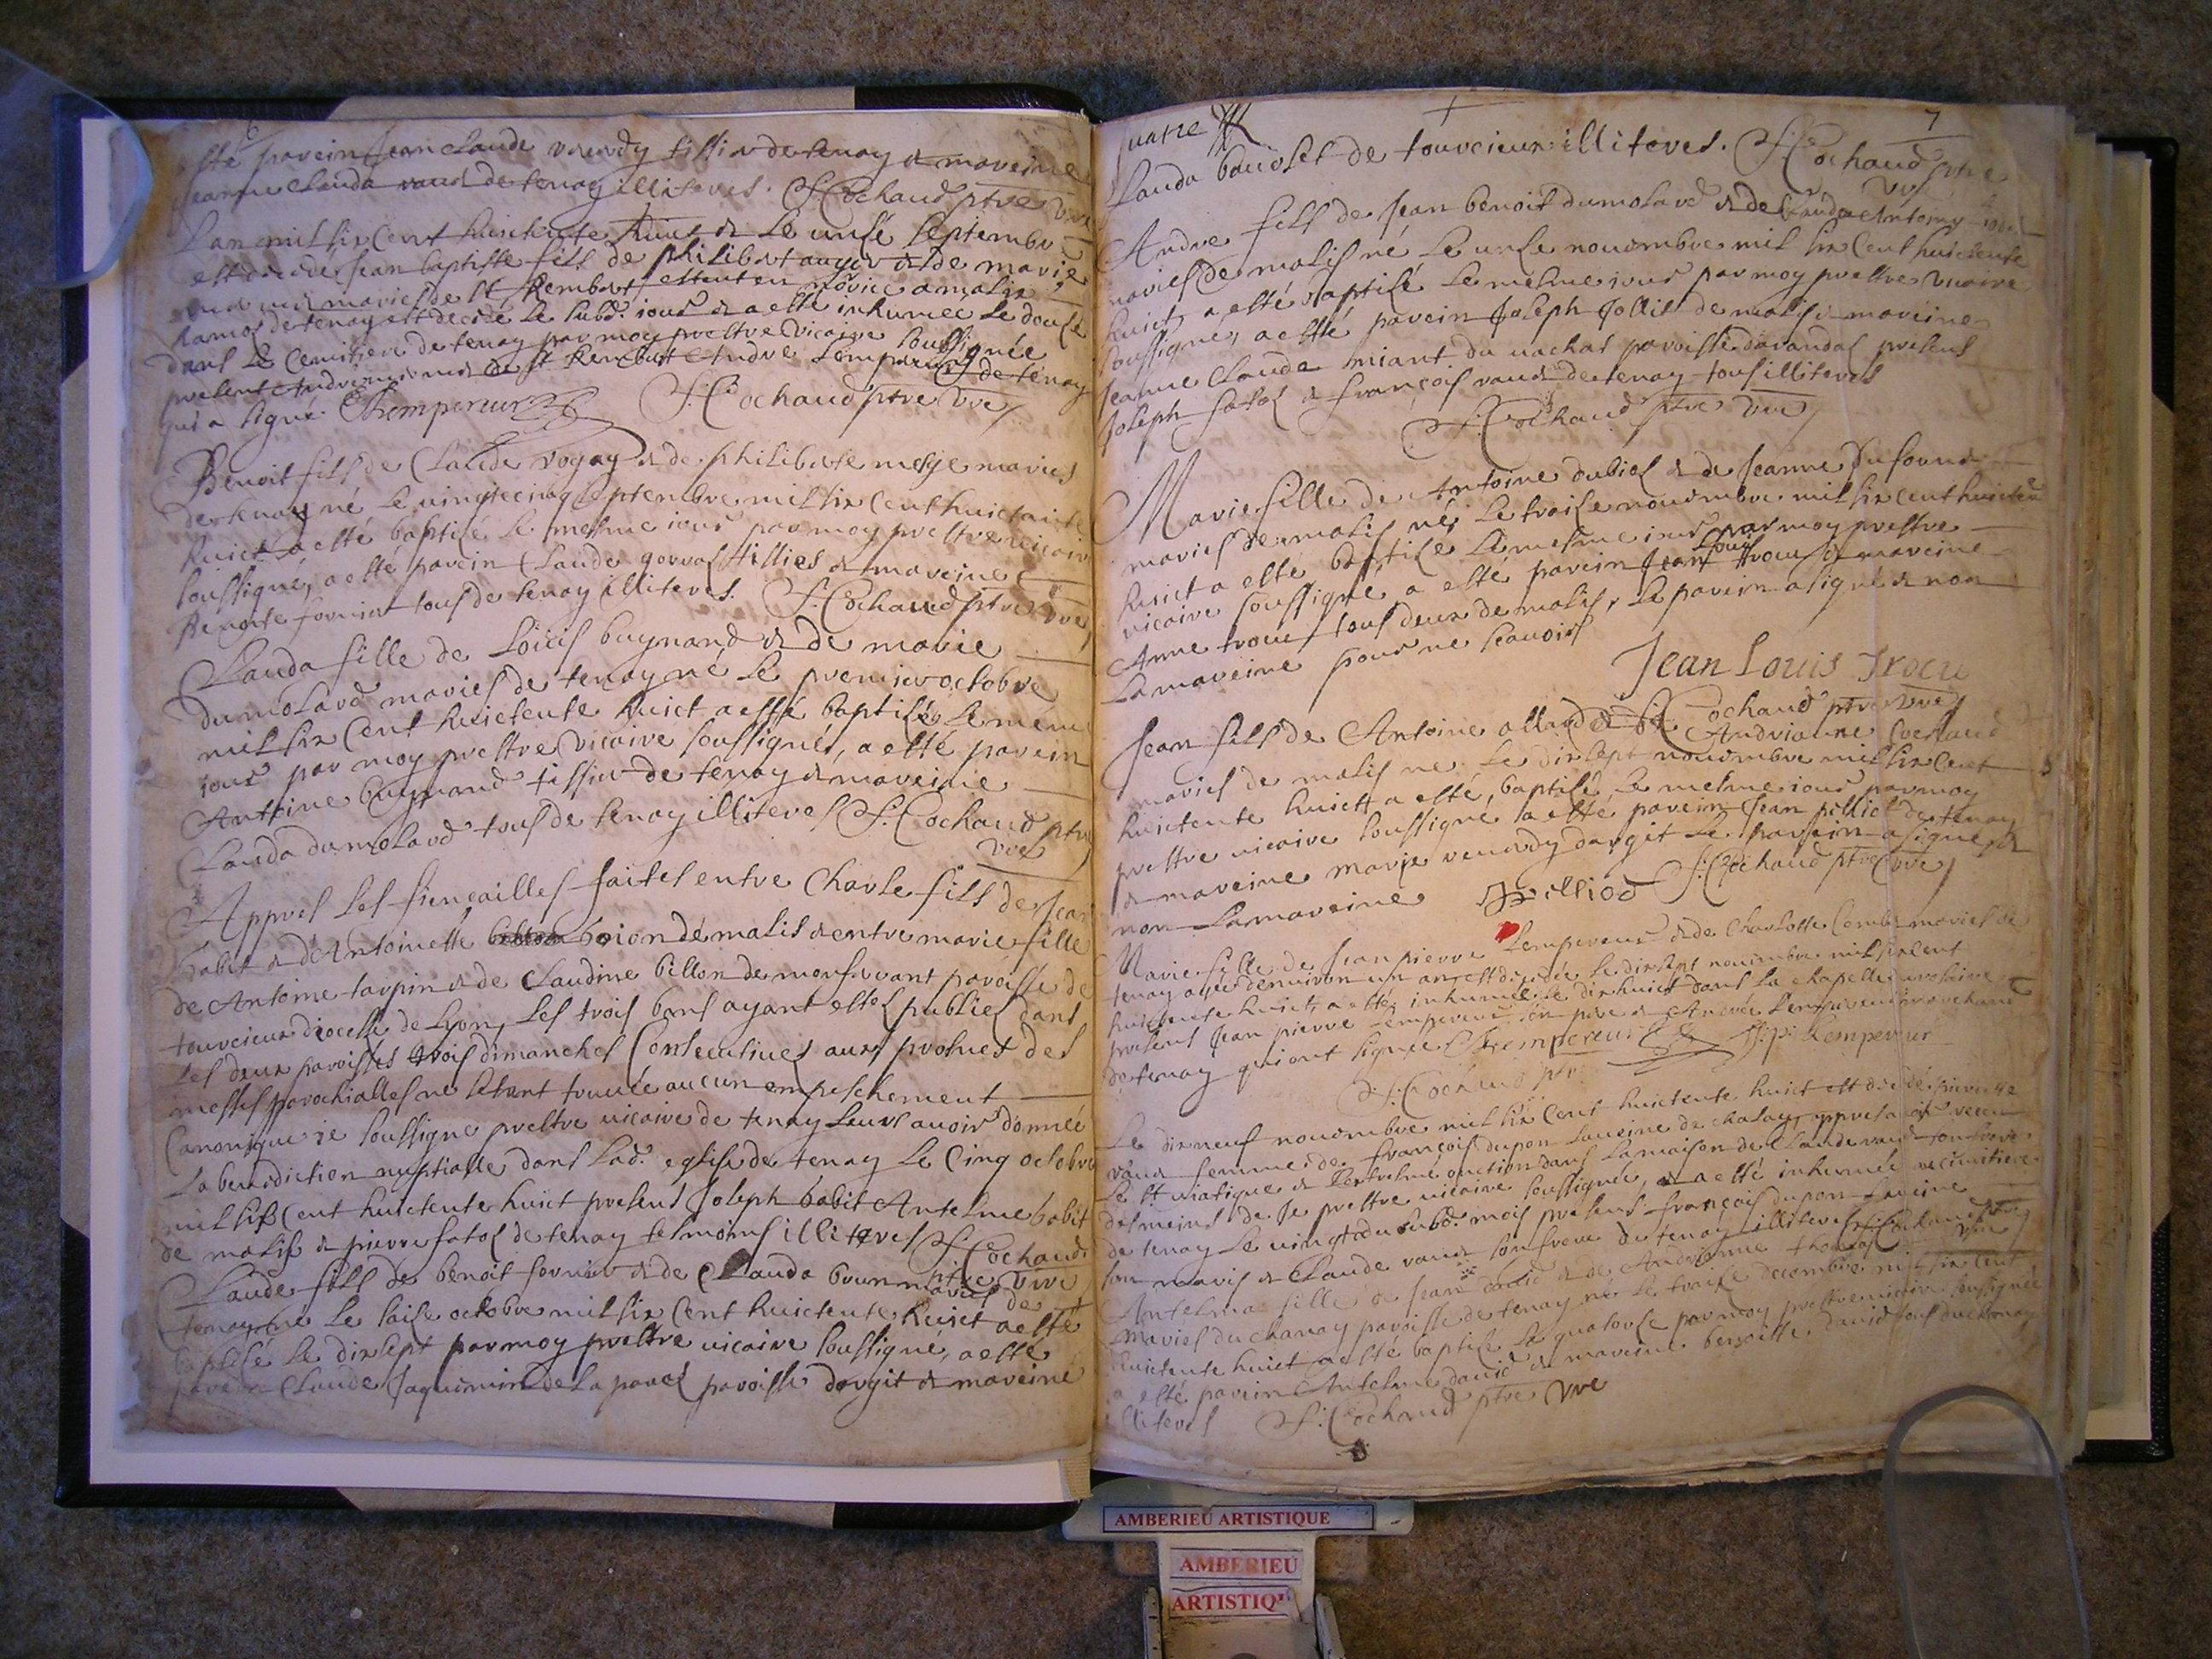 6
esté parein Jean Claude vererdy tissier de tenay et mareine
Jeanne Clauda vaud de tenay illiteres. S: Cochaud ptre vire
L'an mil six cent huictente huict et le unse septembre
est décédé Jean baptiste fils de philibert auger et de marie
mariés de St Rembert estant en norice a malix
hamos de tenay est décidé le subd. jour et a esté inhumée le douse
dans le cemitiere de tenay par moy prestre vicaire soussignée
present André de St Rembert Andre Lempereur de tenay
qui a signé. Lempereur S: Cochaud ptre vre
Benoit fils de Claude rogay et de philiberte mariés
de tenay né le vingtecinq septembre mil six cent huictante
huict a esté baptisé le mesme jour par moy prestre vicaire
soussigné, a esté parein Claude gorras tissies et mareine
fornier tous de tenay illiteres. S: Cochaud ptre vre
Clauda fille de Loüis buynand et de marie
dumolard mariés de tenay né le premier octobre
mil six cent huictente huict a esté baptisé le meme
jour par moy prestre vicaire soussignés, a esté parein
Antoine buynand tissier de tenay et mareine
Clauda dumolard tous de tenay illiteres S: Cochaud ptre
vre
Appres les fiencailles faites entre Charle fils de Jean
babit et d'Antoinette boion de malis et entre marie fille
de Antoine tarpin et de Claudine billon de monferrant paroisse de
tourcieux diocesse de Lyon, les trois bans ayant estés publiés dans
les deux paroisses trois dimanches consecutives aux prosnes des
messes parochialles ne sétant truuée aucun empeschement
canonique je soussigne prestre vicaire de tenay leurs auoir donnée
la benediction nuptialle dans lad. eglise de tenay le cinq octobre
mil six cent huictente huict presens Joseph babit Antelme babit
de malis et pierre fatos de tenay tesmoins illiteres S: Cochaud
ptre vire
Claude fils de benoit fornier et de Clauda mariés de
tenay né le saise octobre mil six cent huictente huict a esté
baptisé le dixsept par moy prestre vicaire soussigné, a esté
parein Claude Jaquemin de la paroisse dargit et mareine
quatre 7
Clauda baudset de tourcieux illiteres. S: Cochaud ptre
vre
André fils de Jean benoit dumolard et de Clauda Antoiny
mariés de malis né le unse nouembre mil six cent huictente
huict, a esté baptisé le mesme jour par moy prestre vicaire
soussigné, a esté parein Joseph Jollis de malis et mareine
Jeanne Claude miant du vachat paroisse d'arandas presens
Joseph fatos et françois vaud de tenay tous illiteres
S: Cochaud ptre vire
Marie fille de Antoine dubies et de Jeanne dufour
mariés de malis né le traise nouembre mil six cent huicten
huict a esté baptisé le mesme jour par moy prestre
vicaire soussigné a esté parein Jean Louis trocu et mareine
Anne trocu tous deux de malis, le parein a signé et non
la mareine pour ne scauoir
Jean Louis Trocu
S: Cochaud ptre vre
Jean fils de Antoine allard et de Andrianne Cochaud
mariés de malis né le dixsept nouembre mil six cent
huictente huict a esté baptisé le mesme jour par moy
prestre vicaire soussigné a esté parein Jean pilliod de tenay
et mareine marie vererdy dargit le parein a signé et
non la mareine Pilliod S: Cochaud ptre vre
Marie fille de Jean pierre Lempereur et de Charlotte Combe mariés de
tenay agée denuiron un an est décédée le dixsept nouembre mil six cent
huictente huict, a esté inhumée le dixhuict dans la chapelle du rosaire
presens Jean pierre Lempereur son pere et André Lempereur marchand
de tenay qui ont signée Lempereur J: p: Lempereur
S: Cochaud ptre
Le dixneuf nouembre mil six cent huictente huict est décédé pierrette
vaud femme de françois dupon Laueine de chaley, appres auoir receu
le St viatique et l'extreme onction dans la maison de Claude vaud son frere
des mains de je prestre vicaire soussignée, et a esté inhumée au cimitiere
de tenay le vingt du subd. mois presens françois dupon Laueine
son maris et Claude vaud son frere de tenay illiteres S: Cochaud ptre
vre
Antelma fille de Jean dauid et de Andrianne thomas
mariés du chanay paroisse de tenay né le traise decembre mil six cent
huictente huict a esté baptisé le quatorse par moy prestre vicaire soussignée
a esté parein Antelme dauid et mareine benoitte dauid tous du chanay
illiteres S: Cochaud ptre vre
AMBERIEU ARTISTIQUE
AMBERIEU
ARTISTIQU